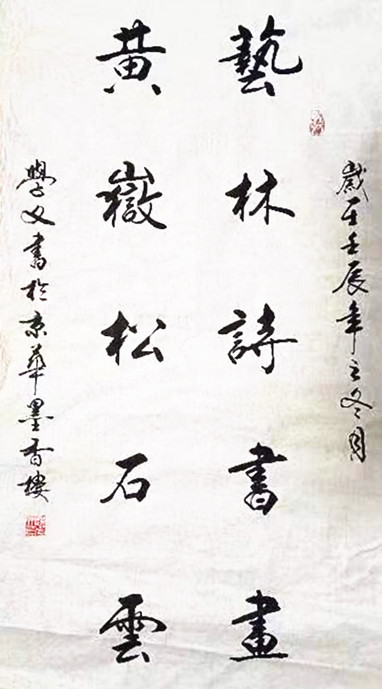 歲在壬辰年之冬月
藝林詩書畫
黃嶽松石雲
學文書於京華墨香樓